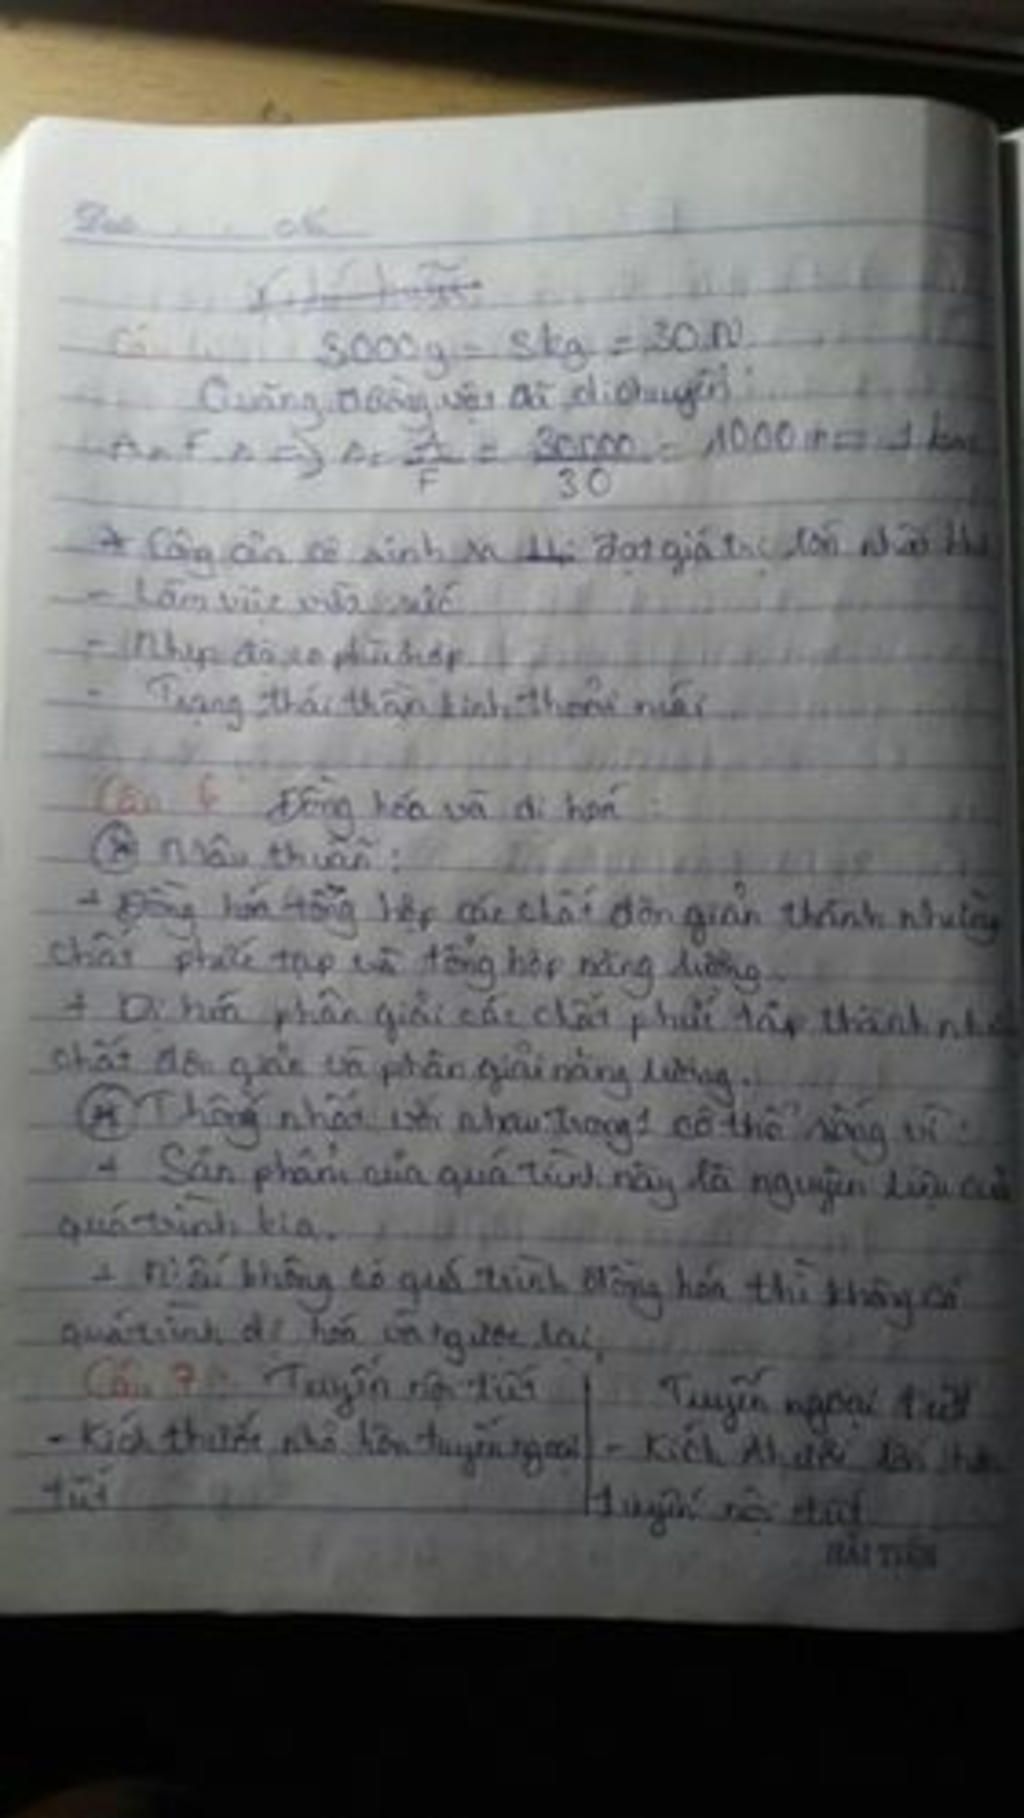 3000g = 3kg = 30N
Quãng đường vật đã di chuyển:
A = F.s => s = A/F = 30000/30 = 1000m = 1km
* Công của cơ sinh ra đạt giá trị lớn nhất khi
- Làm việc vừa sức
- Nhịp độ co phù hợp
- Trạng thái thần kinh thoải mái
Câu 6 Đồng hóa và dị hoá:
* Mâu thuẫn:
+ Đồng hóa tổng hợp các chất đơn giản thành những
chất phức tạp và tổng hợp năng lượng.
+ Dị hóa phân giải các chất phức tạp thành
chất đơn giản và phân giải năng lượng.
* Thống nhất với nhau trong 1 cơ thể sống vì:
+ Sản phẩm của quá trình này là nguyên liệu của
quá trình kia.
+ Nếu không có quá trình đồng hóa thì không có
quá trình dị hóa và ngược lại.
Câu 7: Tuyến nội tiết | Tuyến ngoại tiết
- Kích thước nhỏ hơn tuyến ngoại | - Kích thước lớn hơn
tiết | tuyến nội tiết
HẢI TIẾN